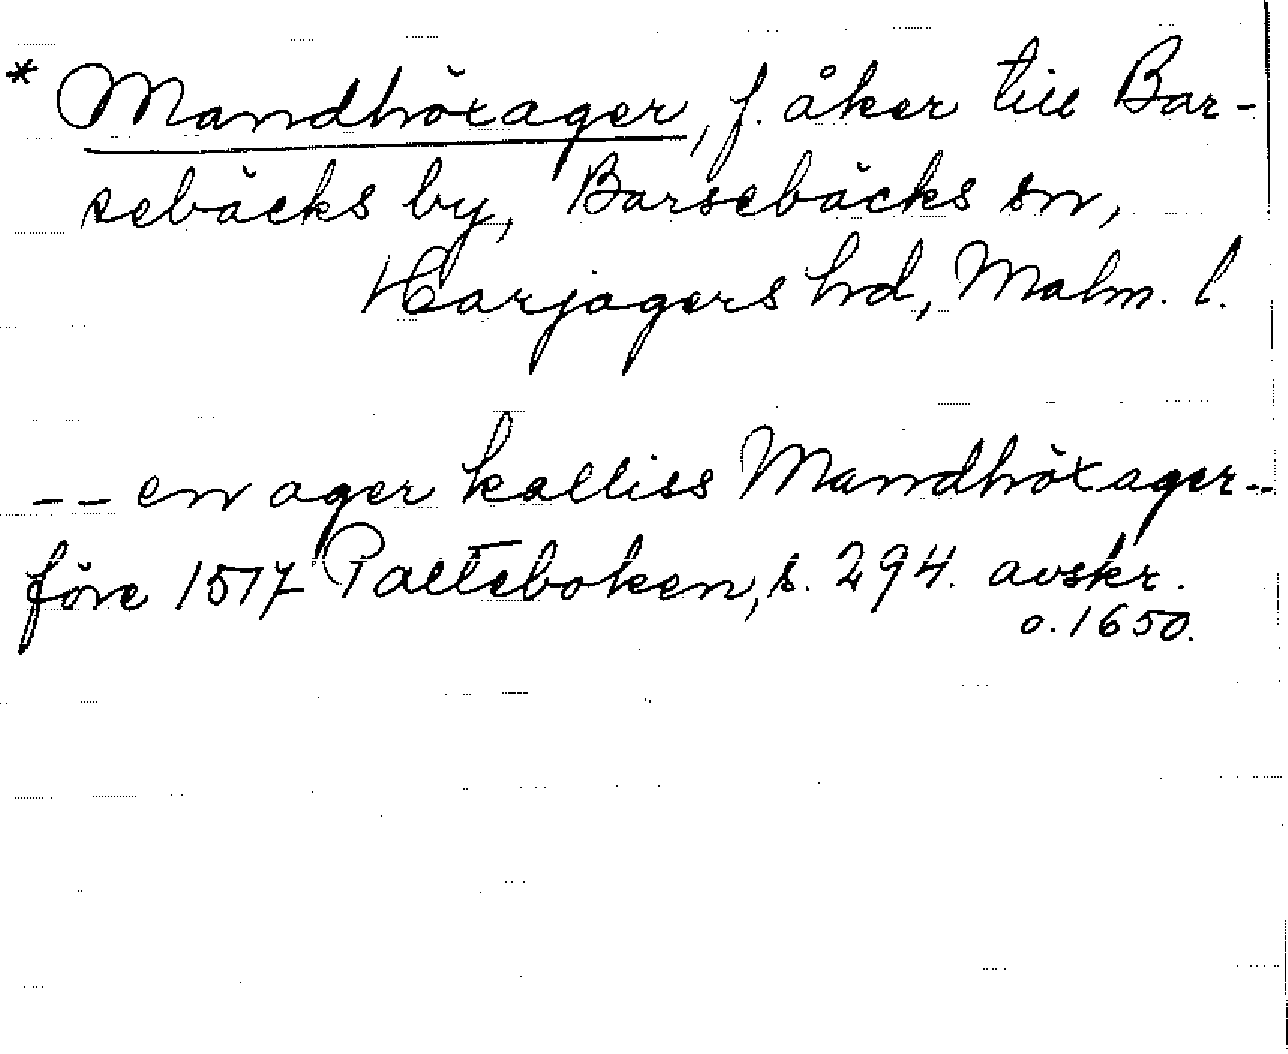 * Mandhöxager, f. åker till Bar-
sebäcks by, Barsebäcks sn,
Harjagers hd, Malm. l.
-- en ager kalliss Mandhöxager--
före 1517 Palteboken, s. 294. avskr.
o. 1650.